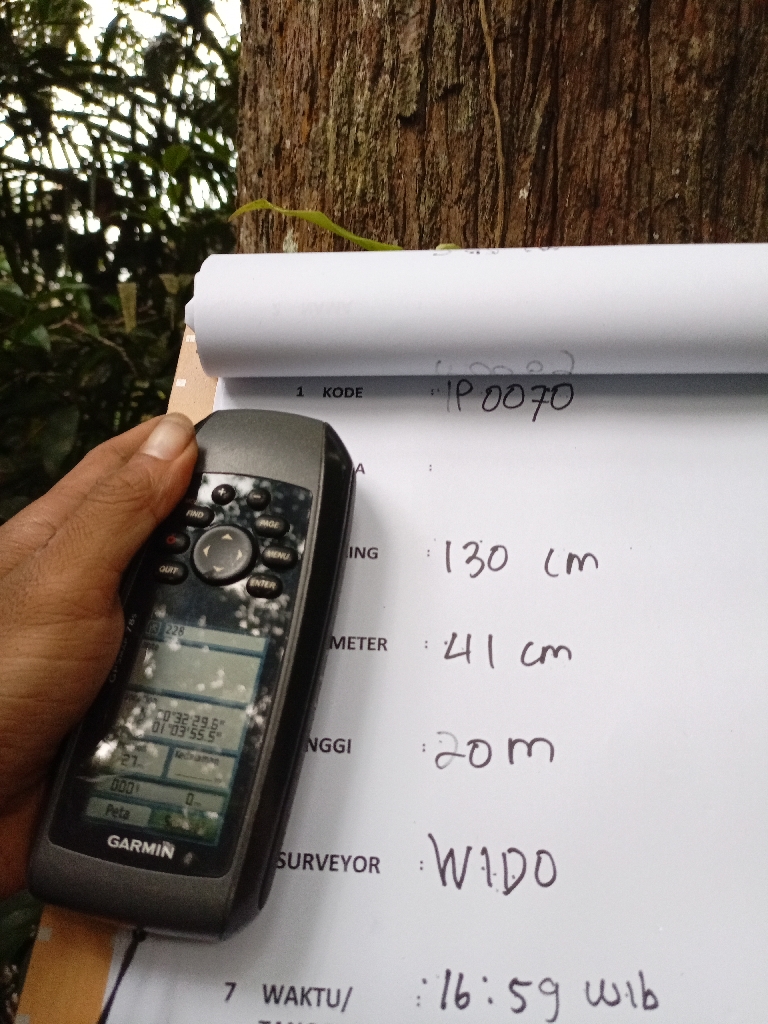 1 KODE : IP 0070
A :
ING : 130 cm
METER : 41 cm
NGGI : 20 m
SURVEYOR : WIDO
7 WAKTU/ : 16:59 wib
FIND
PAGE
MENU
QUIT
ENTER
228
0°32'29.6"
01°03'55.5"
27
0001 0
Peta
GARMIN